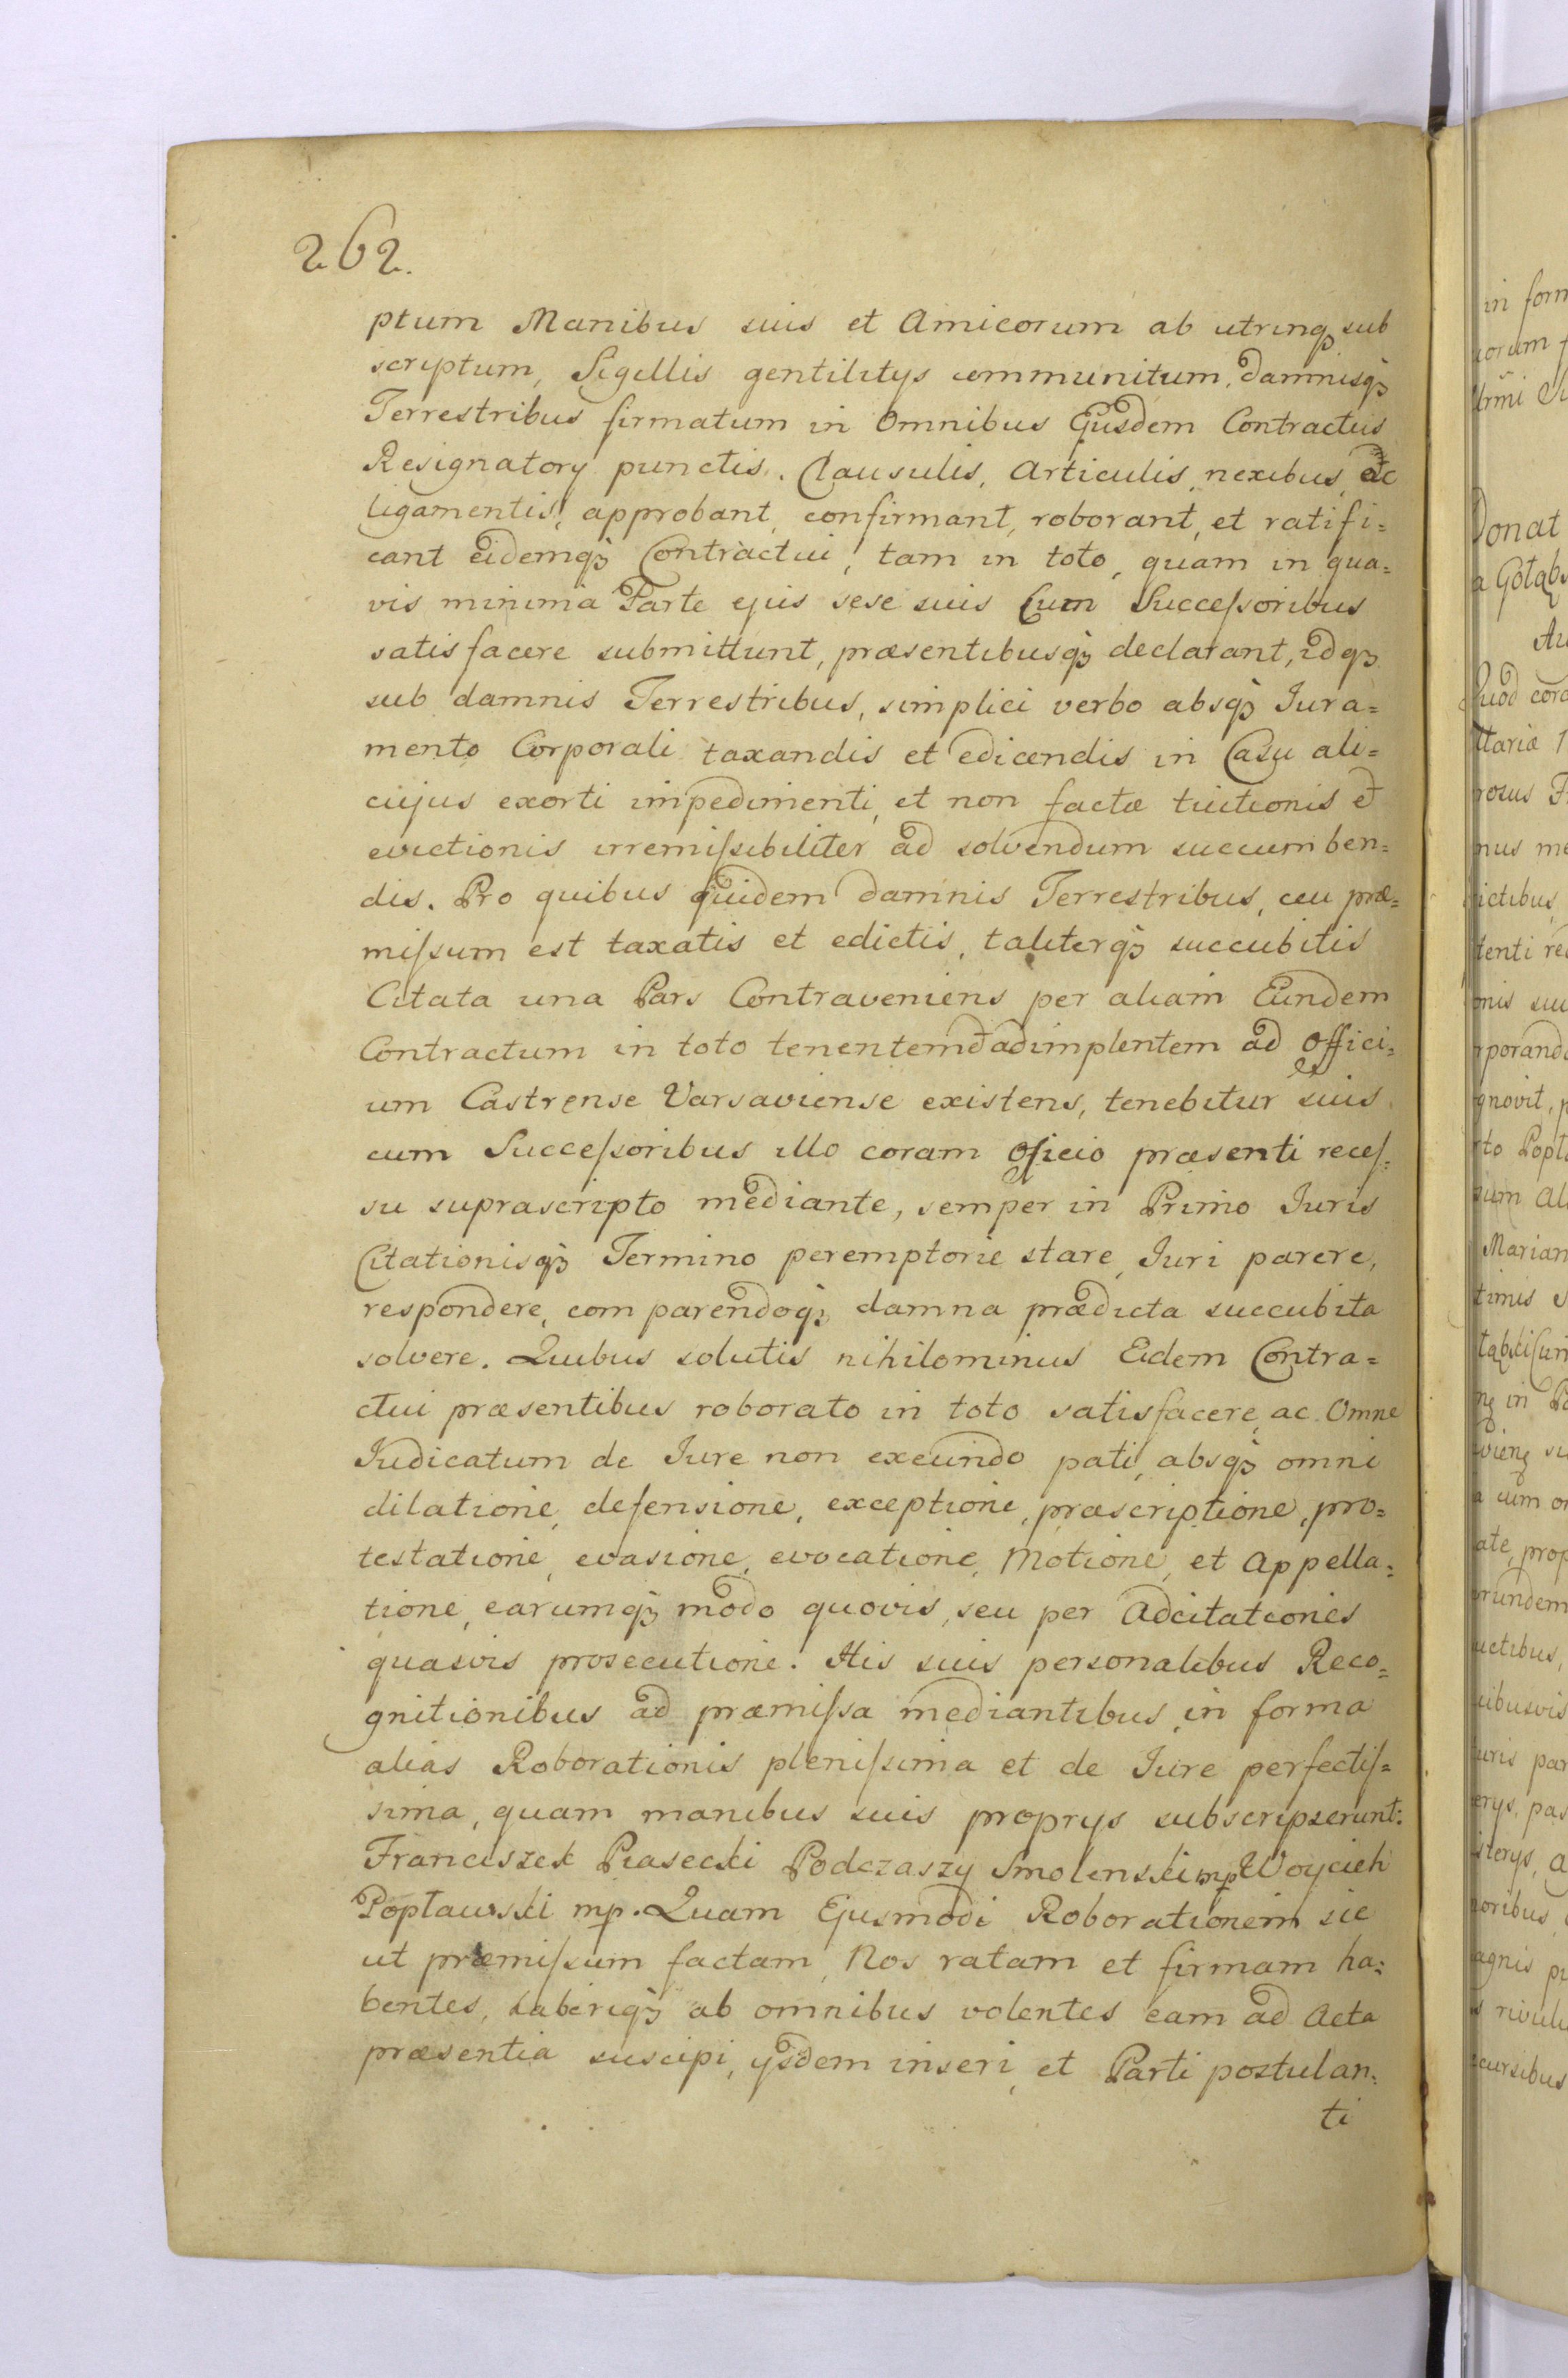 262.
ptum Manibus suis et Amicorum ab utrinq3 sub
scriptum, Sigillis gentilitys communitum, damnisq3
Terrestribus firmatum in Omnibus Ejusdem Contractus
Resignatory punctis. Clausulis, Articulis, nexibus, ac
ligamentis, approbant, confirmant, roborant, et ratifi=
cant eidemq3 Contractui, tam in toto, quam in qua=
vis minima Parte ejus sese suis Cum Succeſsoribus
satisfacere submittunt, præsentibusq3 declarant, idq3
sub damnis Terrestribus, simplici verbo absq3 Jura=
mento Corporali taxandis et edicendis in Casu ali=
cujus exorti impedimenti, et non factæ tuitionis et
evictionis irremiſsibiliter ad solvendum succumben=
dis. Pro quibus quidem damnis Terrestribus, ceu præ=
miſsum est taxatis et edictis, taliterq3 succubitis
Citata una Pars Contraveniens per aliam Eundem
Contractum in toto tenentem et adimplentem ad Offici=
um Castrense Varsaviense existens, tenebitur et suis
cum Succeſsoribus illo coram Officio præsenti receſ=
su suprascripto mediante, semper in Primo Juris
Citationisq3 Termino peremptorie stare, Juri parere,
respondere, comparendoq3 damna prædicta succubita
solvere. Quibus solutis nihilominus Eidem Contra=
ctui præsentibus roborato in toto satisfacere, ac Omne
Judicatum de Jure non exeundo pati, absq3 omni
dilatione, defensione, exceptione, præscriptione, pro=
testatione, evasione, evocatione, Motione, et Appella=
tione, earumq3 modo quovis, seu per Adcitationes
quasvis prosecutione. His suis personalibus Reco=
gnitionibus ad præmiſsa mediantibus, in forma
alias Roborationis pleniſsima et de Jure perfectiſ=
sima, quam manibus suis proprys subscripserunt:
Franciszek Piasecki Podczaszy Smolenski mp Woyciech
Popławski mp. Quam Ejusmodi Roborationem sic
ut præmiſsum factam, Nos ratam et firmam ha=
bentes, haberiq3 ab omnibus volentes eam ad Acta
præsentia suscipi, ysdem inseri, et Parti postulan=
ti